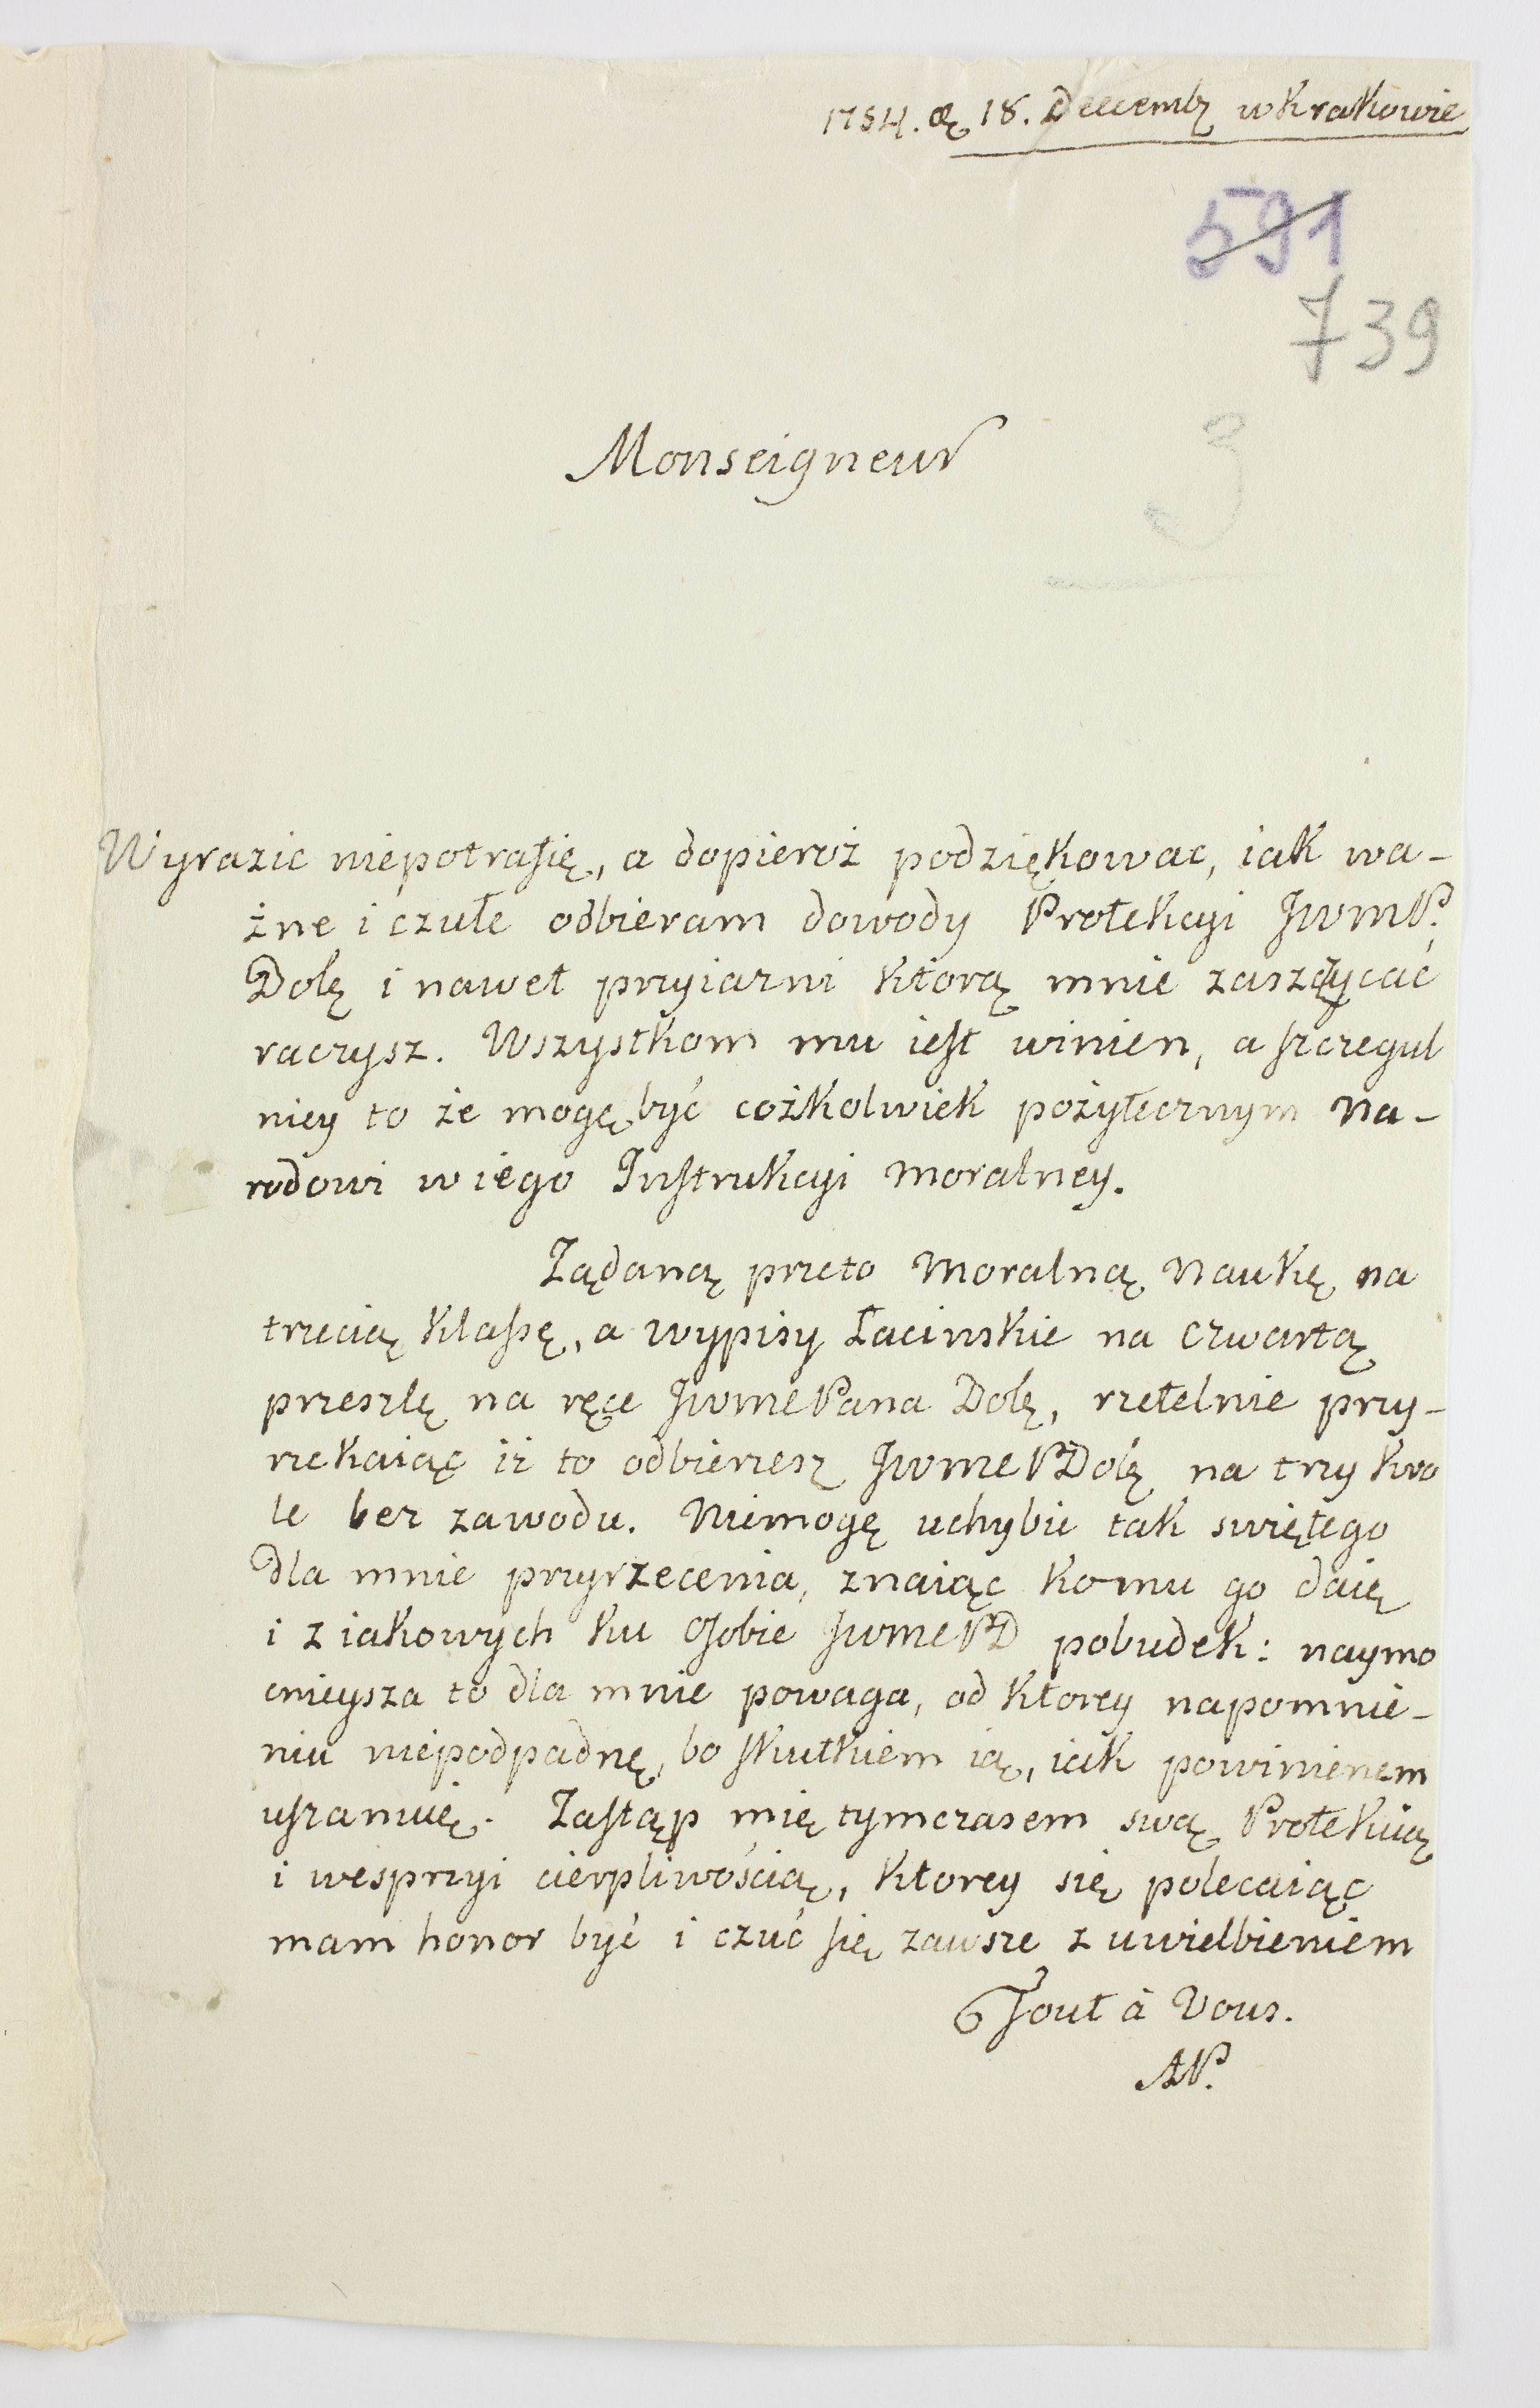 1784. d. 18. Decemb w Krakowie
591
739
3
Monseigneur
Wyrazic niepotrafię, a dopieroż podziękowac, iak wa-
żne i czułe odbieram dowody Protekcyi JWMP.
Dobę i nawet przyiazni ktorą mnie zaszczycać
raczysz. Wszystkom mu iest winien, a szczegul
niey to że mogę być cożkolwiek pożytecznym Na-
rodowi w iego Instrukcyi moralney.
Żądaną przeto Moralną Naukę na
trzecią klassę, a wypisy Łacinskie na czwartą
przeszlę na ręce JWMePana Dobę, rzetelnie przy-
rzekaiąc iż to odbierzesz JWMePDobę na trzy kro
le bez zawodu. Niemogę uchybic tak swiętego
dla mnie przyrzeczenia, znaiąc komu go daię
i z iakowych ku osobie JWMePD pobudek: naymo
cnieysza to dla mnie powaga, od ktorey napomnie-
niu niepodpadnę, bo skutkiem ią, iak powinienem
uszanuię. Zastąp mię tymczasem swą Protekcią
i wesprzyi cierpliwością, ktorey się polecaiąc
mam honor być i czuć się zawsze z uwielbieniem
Tout à Vous.
AP.